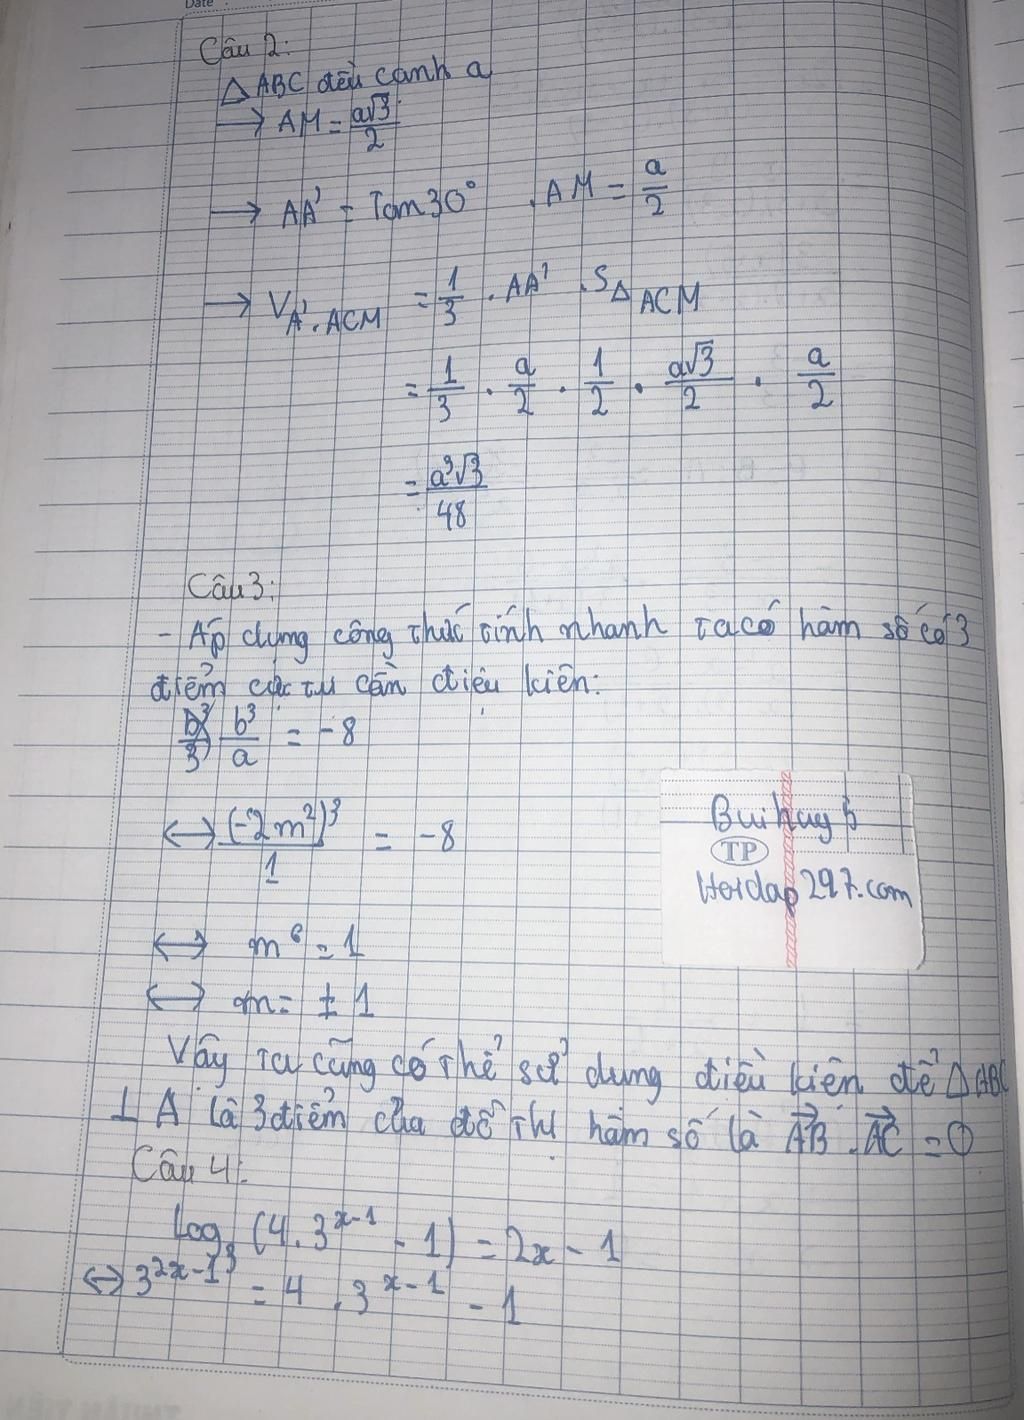 Date
Câu 2:
△ABC đều cạnh a
→ AM = a√3/2
→ AA' = Tan30° . AM = a/2
→ V_A'.ACM = 1/3 . AA' . S△ACM
= 1/3 . a/2 . 1/2 . a√3/2 . a/2
= a³√3/48
Câu 3:
- Áp dụng công thức tính nhanh ta có hàm số có 3
điểm cực trị cần điều kiện:
b³/a = -8
↔ (-2m²)³/1 = -8
Bui huy
TP
Hoidap297.com
↔ m⁶ = 1
↔ m = ± 1
Vậy ta cũng có thể sử dụng điều kiện để △ABC
⊥ A là 3 điểm của đồ thị hàm số là AB→ . AC→ = 0
Câu 4:
Log₃ (4.3^(x-1) - 1) = 2x - 1
↔ 3^(2x-1) = 4 . 3^(x-1) - 1